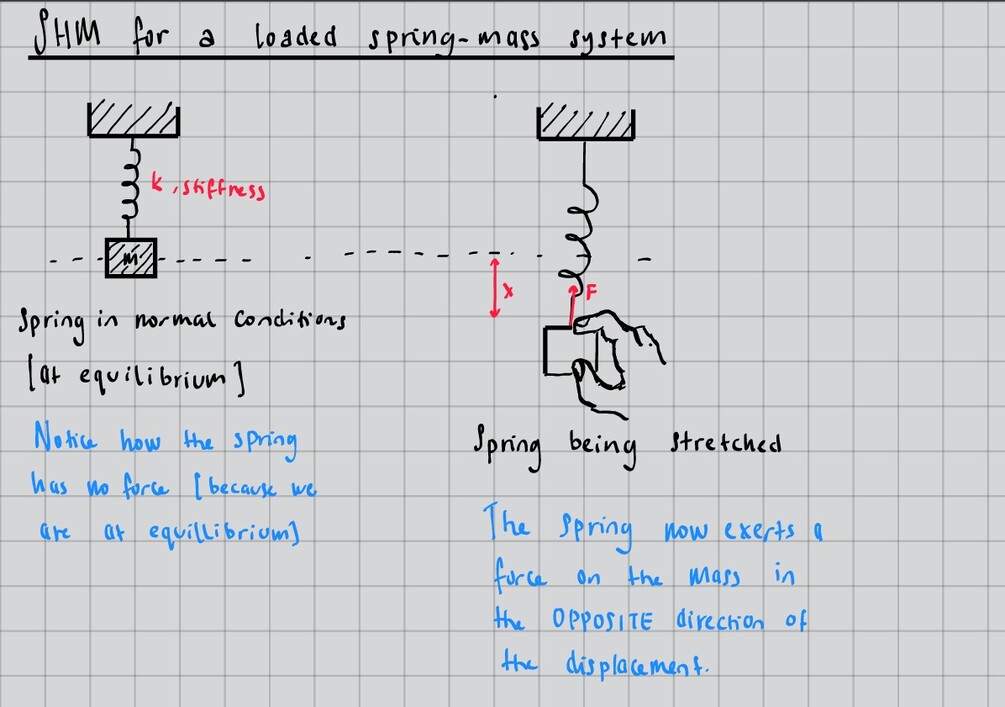 SHM for a loaded spring-mass system
k, stiffness
m
x
F
Spring in normal conditions
[at equilibrium]
Notice how the spring
has no force [because we
are at equillibrium]
Spring being stretched
The spring now exerts a
force on the mass in
the OPPOSITE direction of
the displacement.